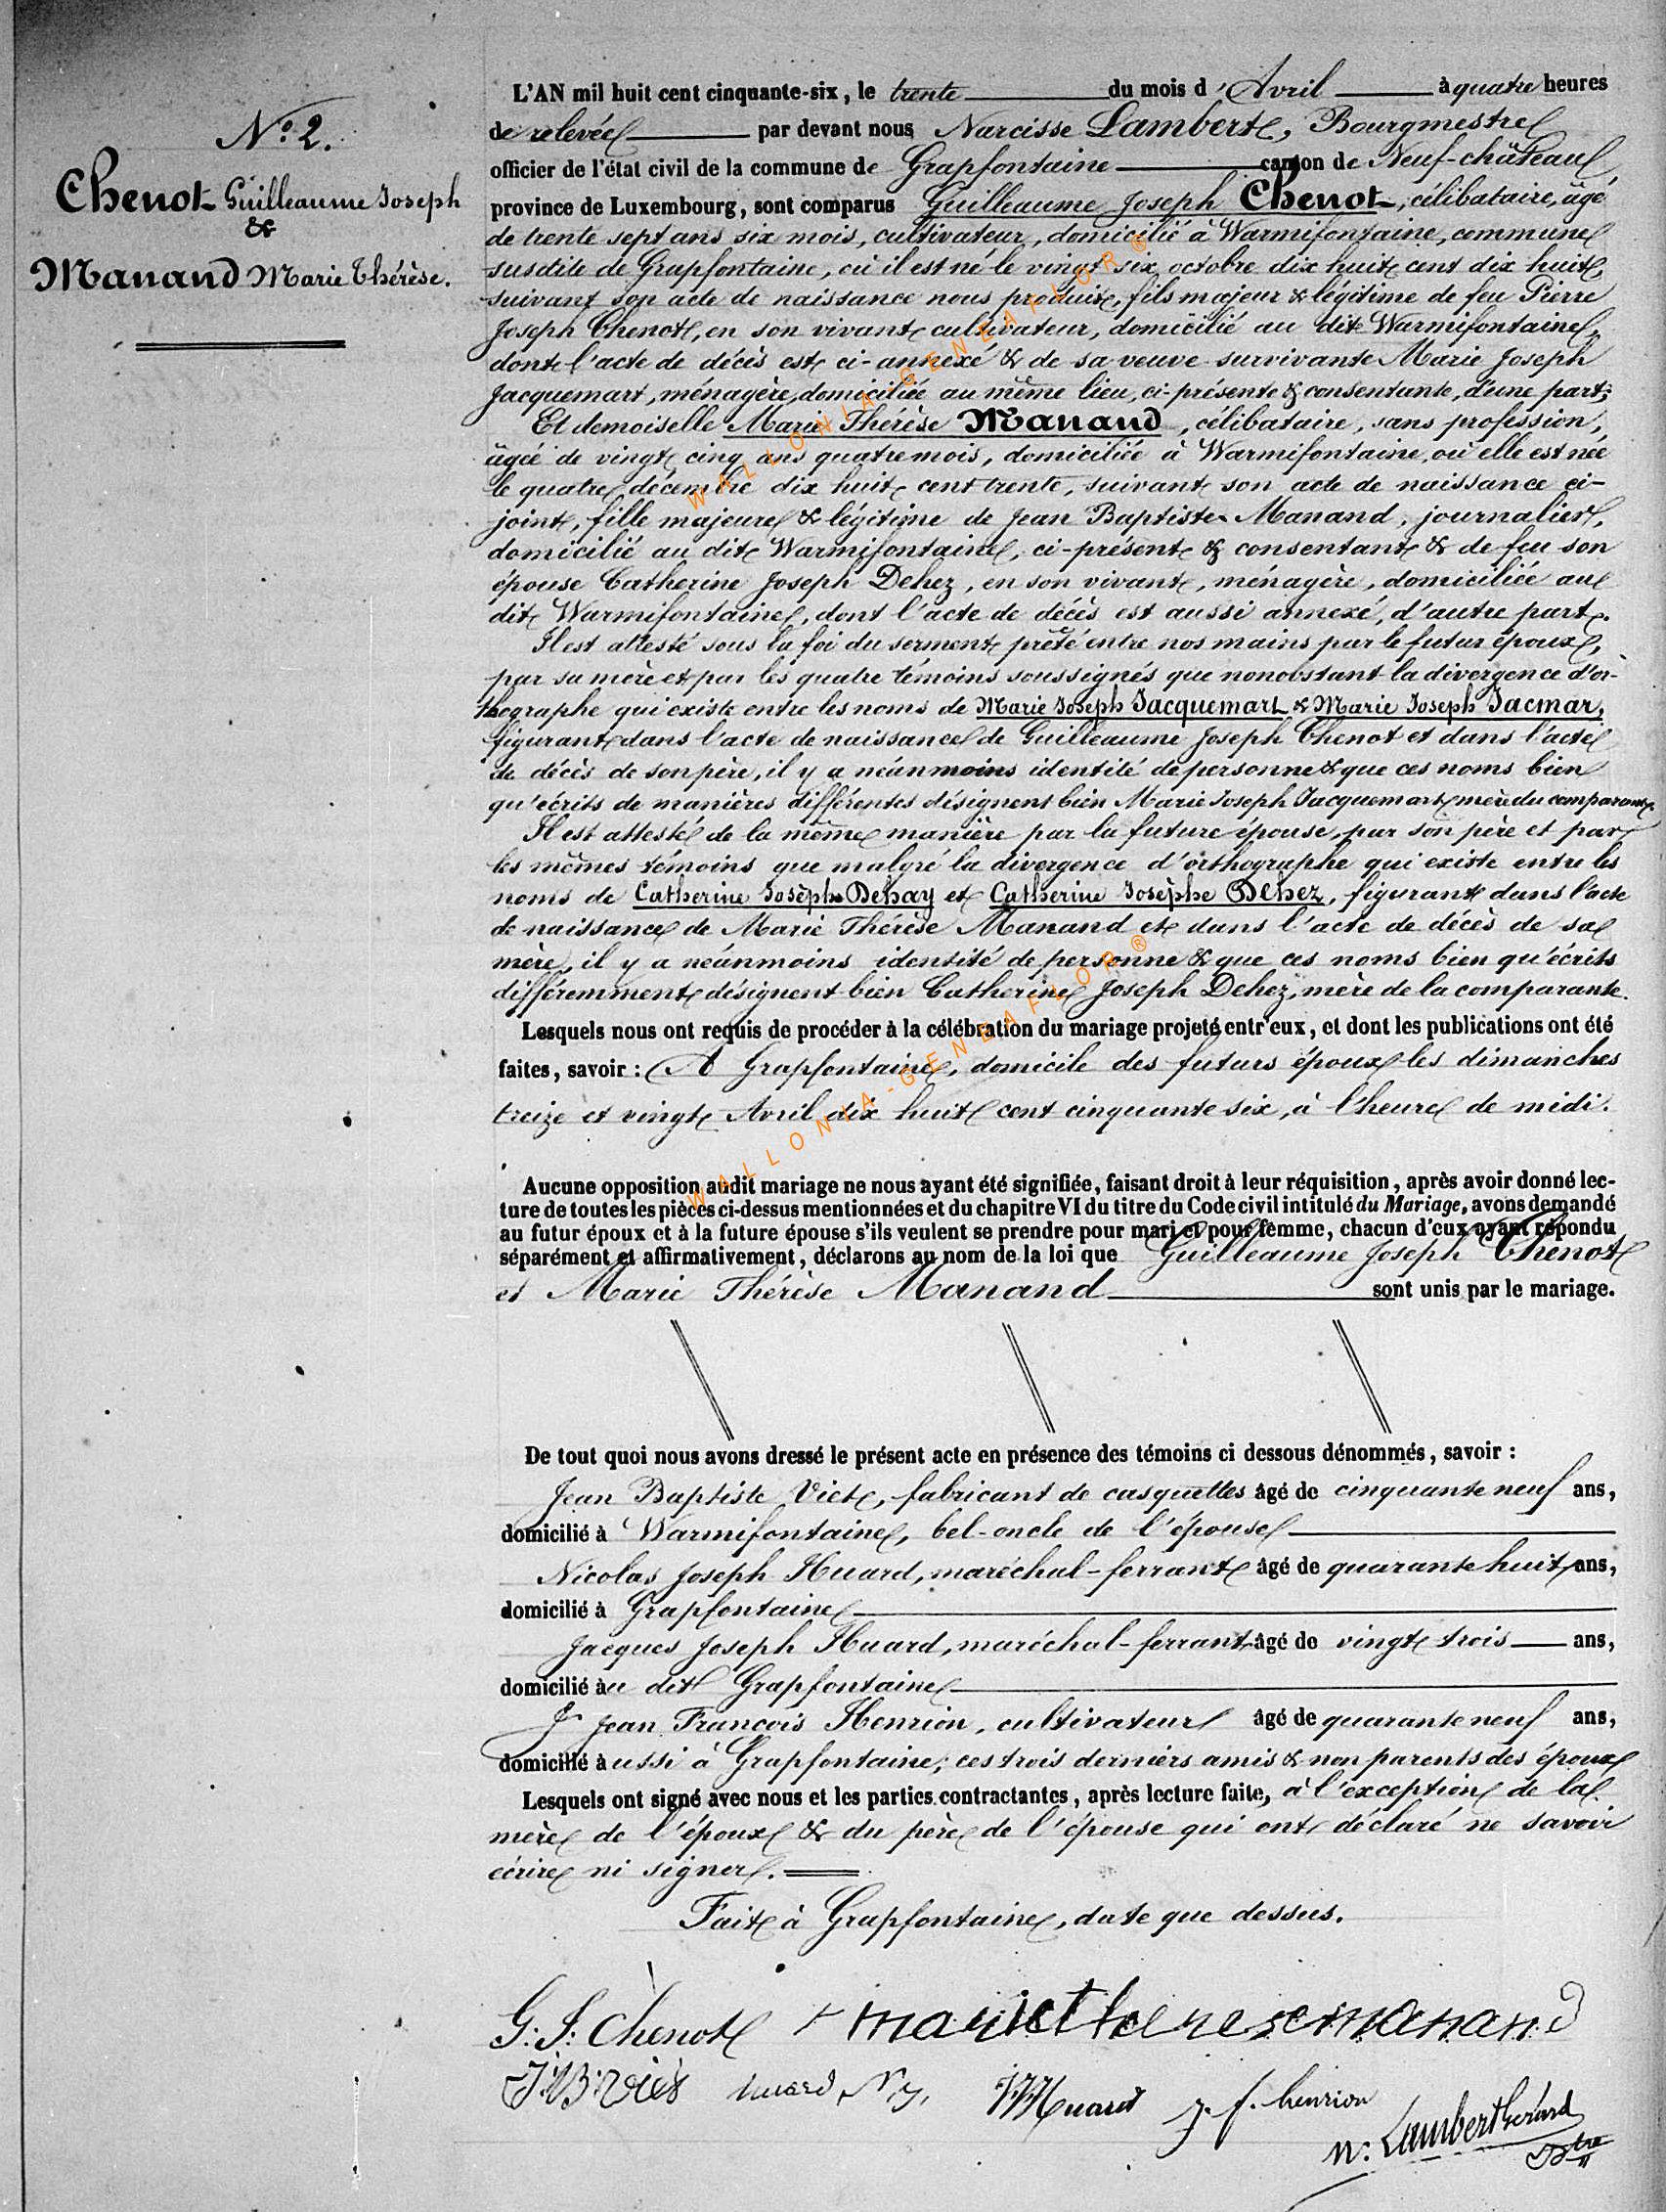 N° 2.
Chenot Guilleaume Joseph
&
Manand Marie Thérèse.
L'AN mil huit cent cinquante-six, le trente du mois d'Avril à quatre heures
de relevée par devant nous Narcisse Lambert, Bourgmestre
officier de l'état civil de la commune de Grapfontaine canton de Neuf-château
province de Luxembourg, sont comparus Guilleaume Joseph Chenot, célibataire, âgé
de trente sept ans six mois, cultivateur, domicilié à Warmifontaine, commune
susdite de Grapfontaine, où il est né le vingt six octobre dix huit cent dix huit,
suivant son acte de naissance nous produit, fils majeur & légitime de feu Pierre
Joseph Chenot, en son vivant cultivateur, domicilié au dit Warmifontaine,
dont l'acte de décès est ci-annexé & de sa veuve survivante Marie Joseph
Jacquemart, ménagère, domiciliée au même lieu, ci-présente & consentante, d'une part;
Et demoiselle Marie Thérèse Manand, célibataire, sans profession,
âgée de vingt cinq ans quatre mois, domiciliée à Warmifontaine, où elle est née
le quatre décembre dix huit cent trente, suivant son acte de naissance ci-
joint, fille majeure & légitime de Jean Baptiste Manand, journalier,
domicilié au dit Warmifontaine, ci-présent & consentant & de feu son
épouse Catherine Joseph Dehez, en son vivant, ménagère, domiciliée au
dit Warmifontaine, dont l'acte de décès est aussi annexé, d'autre part.
Il est attesté sous la foi du serment prêté entre nos mains par le futur époux,
par sa mère et par les quatre témoins soussignés que nonobstant la divergence d'or-
thographe qui existe entre les noms de Marie Joseph Jacquemart & Marie Joseph Jacmar,
figurant dans l'acte de naissance de Guilleaume Joseph Chenot et dans l'acte
de décès de son père, il y a néanmoins identité de personne & que ces noms bien
qu'écrits de manières différentes désignent bien Marie Joseph Jacquemart mère du comparant.
Il est attesté de la même manière par la future épouse, par son père et par
les mêmes témoins que malgré la divergence d'orthographe qui existe entre les
noms de Catherine Josèphe Dehay et Catherine Josèphe Dehez, figurant dans l'acte
de naissance de Marie Thérèse Manand et dans l'acte de décès de sa
mère, il y a néanmoins identité de personne & que ces noms bien qu'écrits
différemment désignent bien Catherine Joseph Dehez, mère de la comparante.
Lesquels nous ont requis de procéder à la célébration du mariage projeté entr'eux, et dont les publications ont été
faites, savoir : A Grapfontaine, domicile des futurs époux les dimanches
treize et vingt Avril dix huit cent cinquante six, à l'heure de midi.
Aucune opposition audit mariage ne nous ayant été signifiée, faisant droit à leur réquisition, après avoir donné lec-
ture de toutes les pièces ci-dessus mentionnées et du chapitre VI du titre du Code civil intitulé du Mariage, avons demandé
au futur époux et à la future épouse s'ils veulent se prendre pour mari et pour femme, chacun d'eux ayant répondu
séparément et affirmativement, déclarons au nom de la loi que Guilleaume Joseph Chenot
et Marie Thérèse Manand sont unis par le mariage.
De tout quoi nous avons dressé le présent acte en présence des témoins ci dessous dénommés, savoir :
Jean Baptiste Viet, fabricant de casquettes âgé de cinquante neuf ans,
domicilié à Warmifontaine, bel-oncle de l'épouse
Nicolas Joseph Huard, maréchal-ferrant âgé de quarante huit ans,
domicilié à Grapfontaine
Jacques Joseph Huard, maréchal-ferrant âgé de vingt trois ans,
domicilié au dit Grapfontaine
& Jean François Henrion, cultivateur âgé de quarante neuf ans,
domicilié aussi à Grapfontaine; ces trois derniers amis & non parents des époux
Lesquels ont signé avec nous et les parties contractantes, après lecture faite, à l'exception de la
mère de l'époux & du père de l'épouse qui ont déclaré ne savoir
écrire ni signer.
Fait à Grapfontaine, date que dessus.
G. J. Chenot + marie therese manand
J. B. Viet huard N. J. JJHuard j. f. henrion
N. Lambert Gérard
Btre
WALLONIA-GENEAFLOR ®
WALLONIA-GENEAFLOR ®